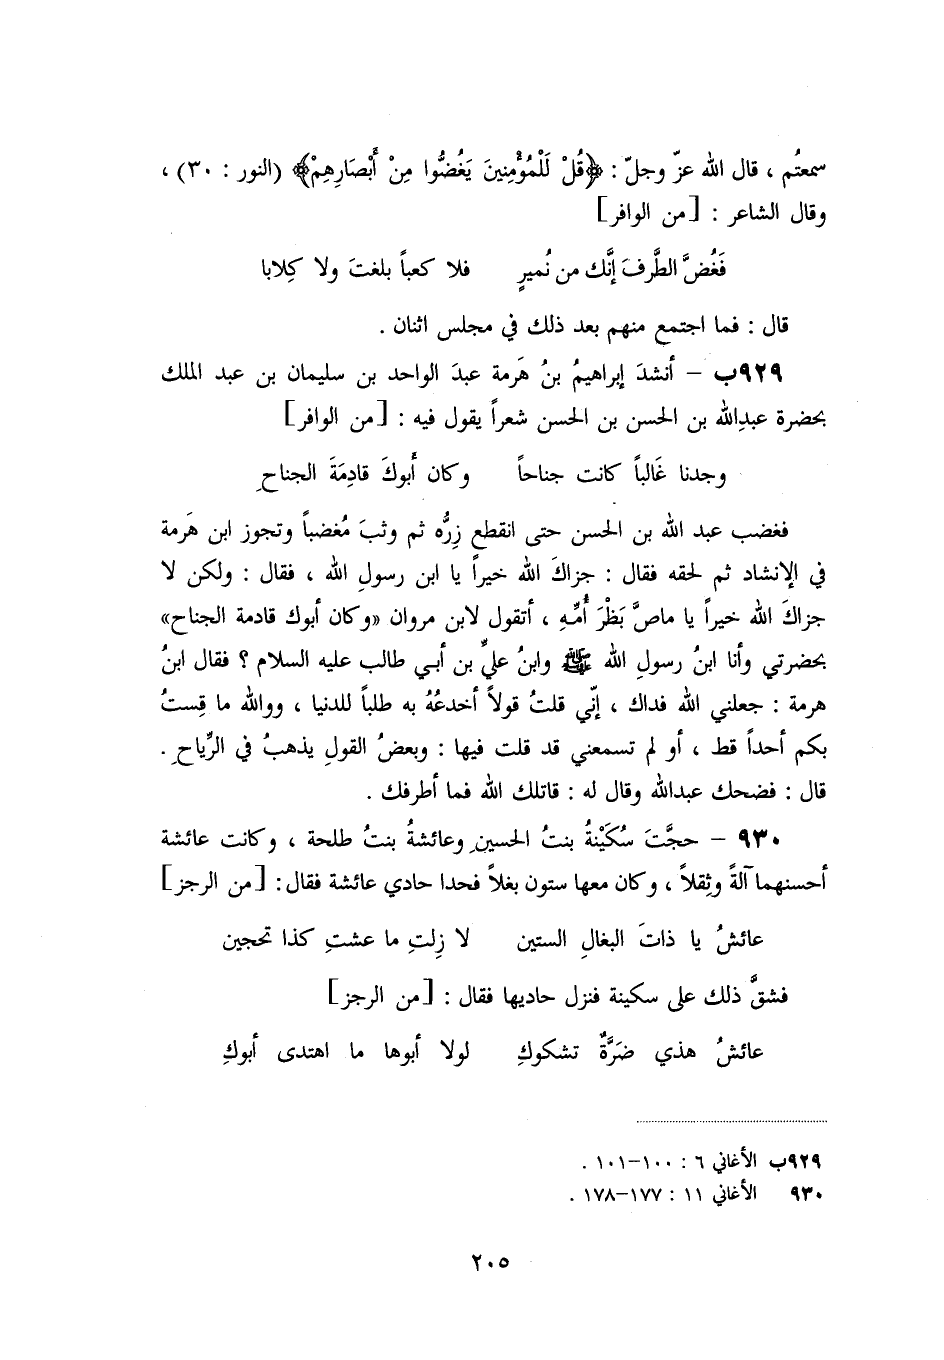 سمعتُم ، قال الله عزّ وجلّ : ﴿قُلْ لَلْمُؤْمِنينَ يَغُضُّوا مِنْ أَبْصَارِهِمْ﴾ (النور : ٣٠) ،
وقال الشاعر : [من الوافر]
فَغُضَّ الطَّرفَ إنَّك من نُميرٍ فلا كعباً بلغتَ ولا كِلابا
قال : فما اجتمع منهم بعد ذلك في مجلس اثنان .
٩٢٩ب – أنشدَ إبراهيمُ بنُ هَرمة عبدَ الواحد بن سليمان بن عبد الملك
بحضرة عبدِالله بن الحسن بن الحسن شعراً يقول فيه : [من الوافر]
وجدنا غَالباً كانت جناحاً وكان أَبوكَ قادِمَةَ الجناحِ
فغضب عبد الله بن الحسن حتى انقطع زِرُّه ثم وثبَ مُغضباً وتجوز ابن هَرمة
في الإنشاد ثم لحقه فقال : جزاكَ الله خيراً يا ابن رسولِ الله ، فقال : ولكن لا
جزاكَ الله خيراً يا ماصَّ بَظْرَ أُمِّهِ ، أتقول لابن مروان «وكان أبوك قادمة الجناح»
بحضرتي وأنا ابنُ رسولِ الله ﷺ وابنُ عليٍّ بن أبي طالب عليه السلام ؟ فقال ابنُ
هرمة : جعلني الله فداك ، إنّي قلتُ قولاً أخدعُهُ به طلباً للدنيا ، ووالله ما قِستُ
بكم أحداً قط ، أو لم تسمعني قد قلت فيها : وبعضُ القولِ يذهبُ في الرِّياحِ .
قال : فضحك عبدالله وقال له : قاتلك الله فما أطرفك .
٩٣٠ – حجَّتَ سُكَيْنةُ بنتُ الحسينِ وعائشةُ بنتُ طلحة ، وكانت عائشة
أحسنهما آلةً وثِقلاً ، وكان معها ستون بغلاً فحدا حادي عائشة فقال : [من الرجز]
عائشُ يا ذاتَ البغالِ الستين لا زِلتِ ما عشتِ كذا تحجين
فشقَّ ذلك على سكينة فنزل حاديها فقال : [من الرجز]
عائشُ هذي ضَرَّةٌ تشكوكِ لولا أبوها ما اهتدى أبوكِ
٩٢٩ب الأغاني ٦ : ١٠٠–١٠١ .
٩٣٠ الأغاني ١١ : ١٧٧–١٧٨ .
٢٠٥